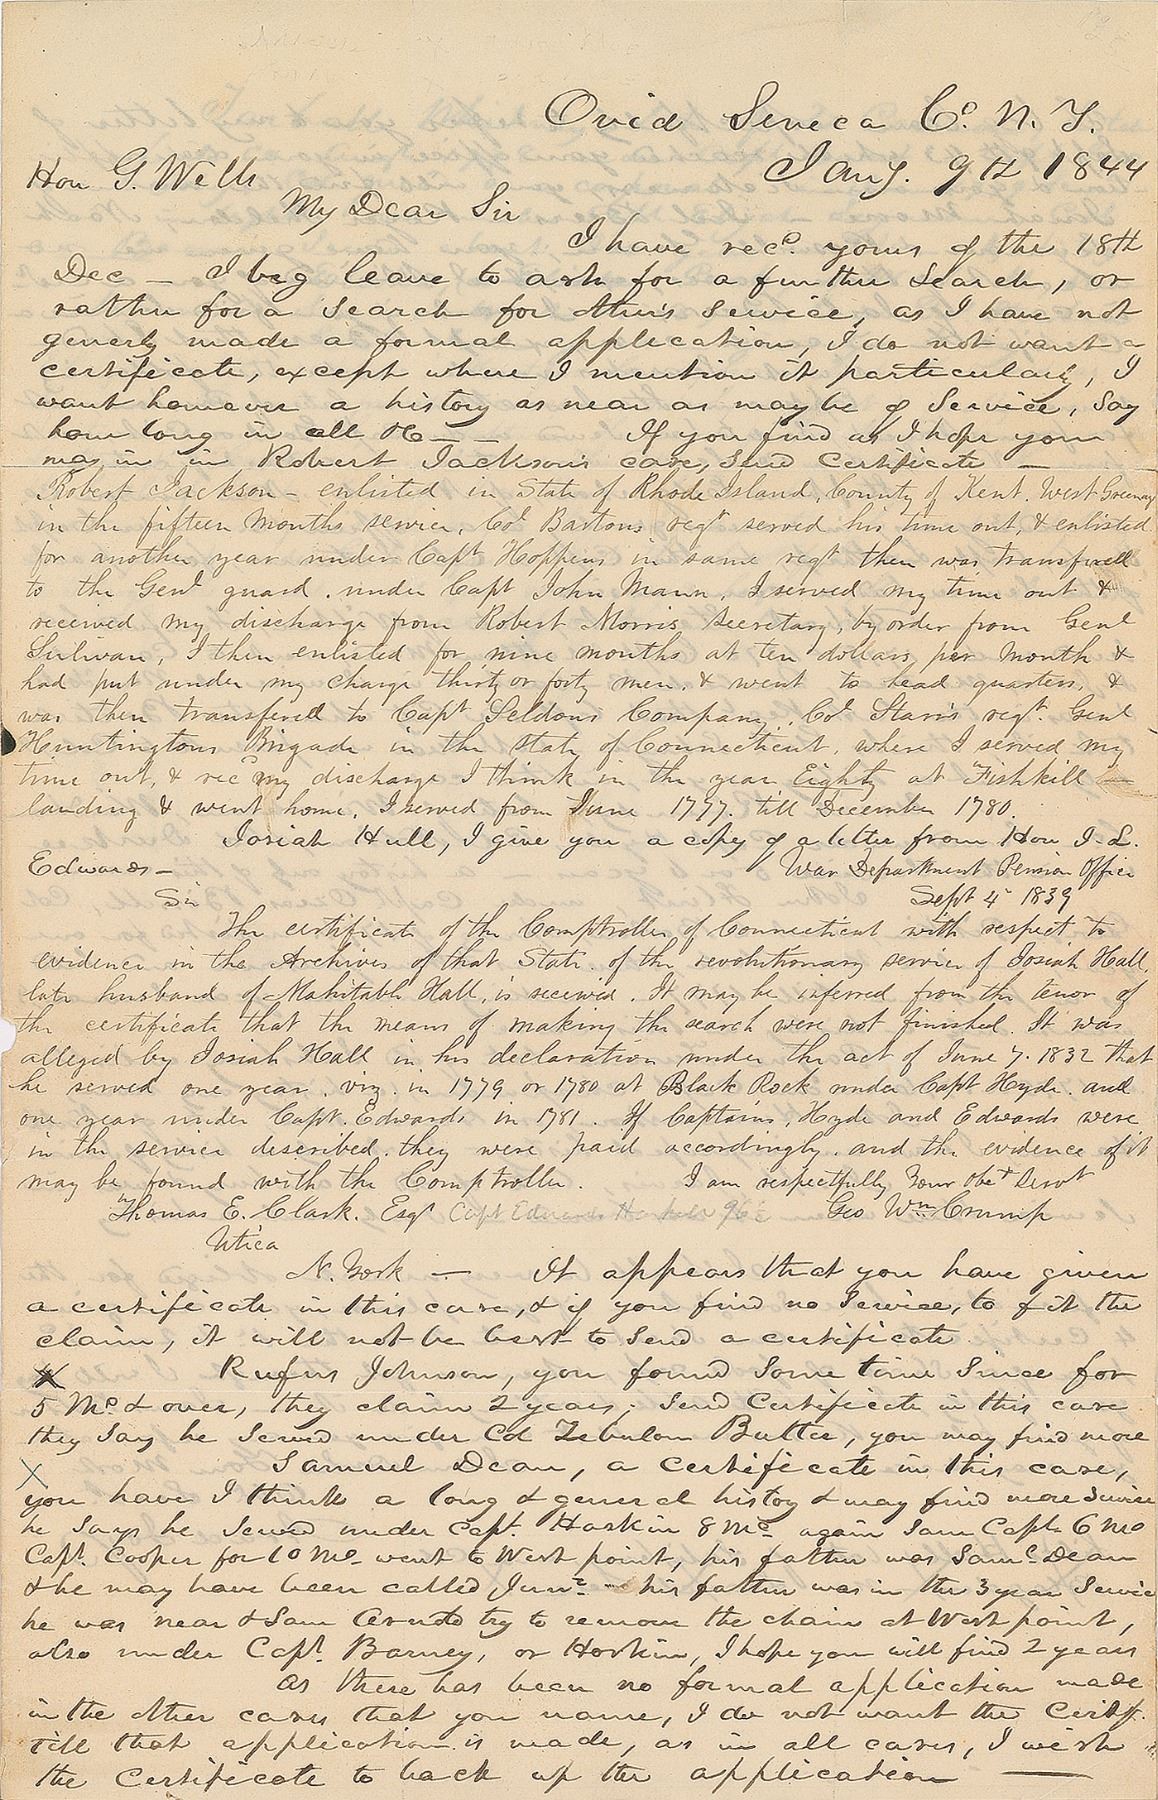 Ovid Seneca Co. N. Y.
Jany. 9th 1844
Hon G. Wells
My Dear Sir
I have recd. yours of the 18th
Dec — I beg leave to ask for a further Search, or
rather for a Search for others Service, as I have not
generly made a formal application, I do not want a
certificate, except where I mention it particularly, I
want however a history as near as may be of Service, Say
how long in all &c — — If you find as I hope you
may in in Robert Jackson's case, Send Certificate —
Robert Jackson - enlisted in State of Rhode Island, County of Kent. West Greenag
in the fifteen Months service, Col Bartons regt served his time out, & enlisted
for another year under Capt Hoppens in same regt then was transfered
to the Genl guard. under Capt John Mann, I served my time out &
received my discharge from Robert Morris Secretary, by order from Genl
Sulivan, I then enlisted for nine months at ten dollars per Month &
had put under my charge thirty or forty men, & went to head quarters, &
was then transfered to Capt Seldons Company, Col Starrs regt. Genl
Huntingtons Brigade in the State of Connecticut, where I served my
time out, & recd my discharge I think in the year Eighty at Fishkill
landing & went home, I served from June 1777. till December 1780.
Josiah Hull, I give you a copy of a letter from Hon J. L.
Edwards — War Department Pension Office
Sept 4 1839
Sir
The certificate of the Comptroller of Connecticut with respect to
evidence in the Archives of that State of the revolutionary service of Josiah Hall,
late husband of Mahitable Hall, is received. It may be inferred from the tenor of
the certificate that the means of making the search were not finished. It was
alleged by Josiah Hall in his declaration under the act of June 7. 1832 that
he served one year. viz. in 1779 or 1780 at Black Rock under Capt Hyde. and
one year under Capt. Edwards in 1781. If Captains, Hyde and Edwards were
in the service described. they were paid accordingly. and the evidence of it
may be found with the Comptroller. I am respectfully Your Obet Servt
Thomas E. Clark. Esqr Capt Edwards Geo Wm Crump
Utica
N. York — It appears that you have given
a certificate in this case, & if you find no Service, to fit the
claim, it will not be best to Send a certificate
X Rufus Johnson, you found Some time Since for
5 Mos & over, they claim 2 years; Send Certificate in this case
they Say he Served under Col Zebulon Butler, you may find more
X Samuel Dean, a certificate in this case,
you have I think a long & general history & may find more Service
he Says he Served under Capt. Haskin 8 Mos again Sam Capt. 6 Mo
Capt. Cooper for 10 Mo. went to West point, his father was Saml Dean
& he may have been called Junr — his father was in the 3 year Service
he was near & Saw Arnold try to remove the chain at West point,
also under Capt. Barney, or Hoskin, I hope you will find 2 years
As there has been no formal application made
in the other cases that you name, I do not want the Certif.
till that application is made, as in all cases, I wish
the Certificate to back up the application ——